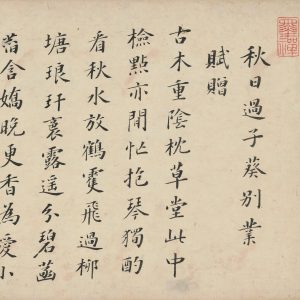 秋日過子葵別業
賦贈
古木重陰枕草堂此中
檢點亦閒忙抱琴獨酌
看秋水放鶴䨇飛過柳
塘琅玕裛露遥分碧菡
萏含嬌晚更香為愛小